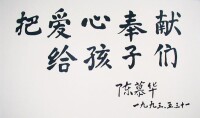 把爱心奉献
给孩子们
陈慕华
一九九三.五.三十一